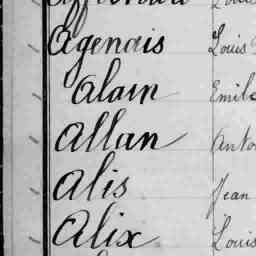 Agenais Louis
Alain Emile
Allan
Alis Jean
Alix Louis